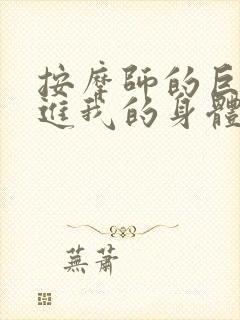 按摩師的巨
進我的身體
蕪蕭